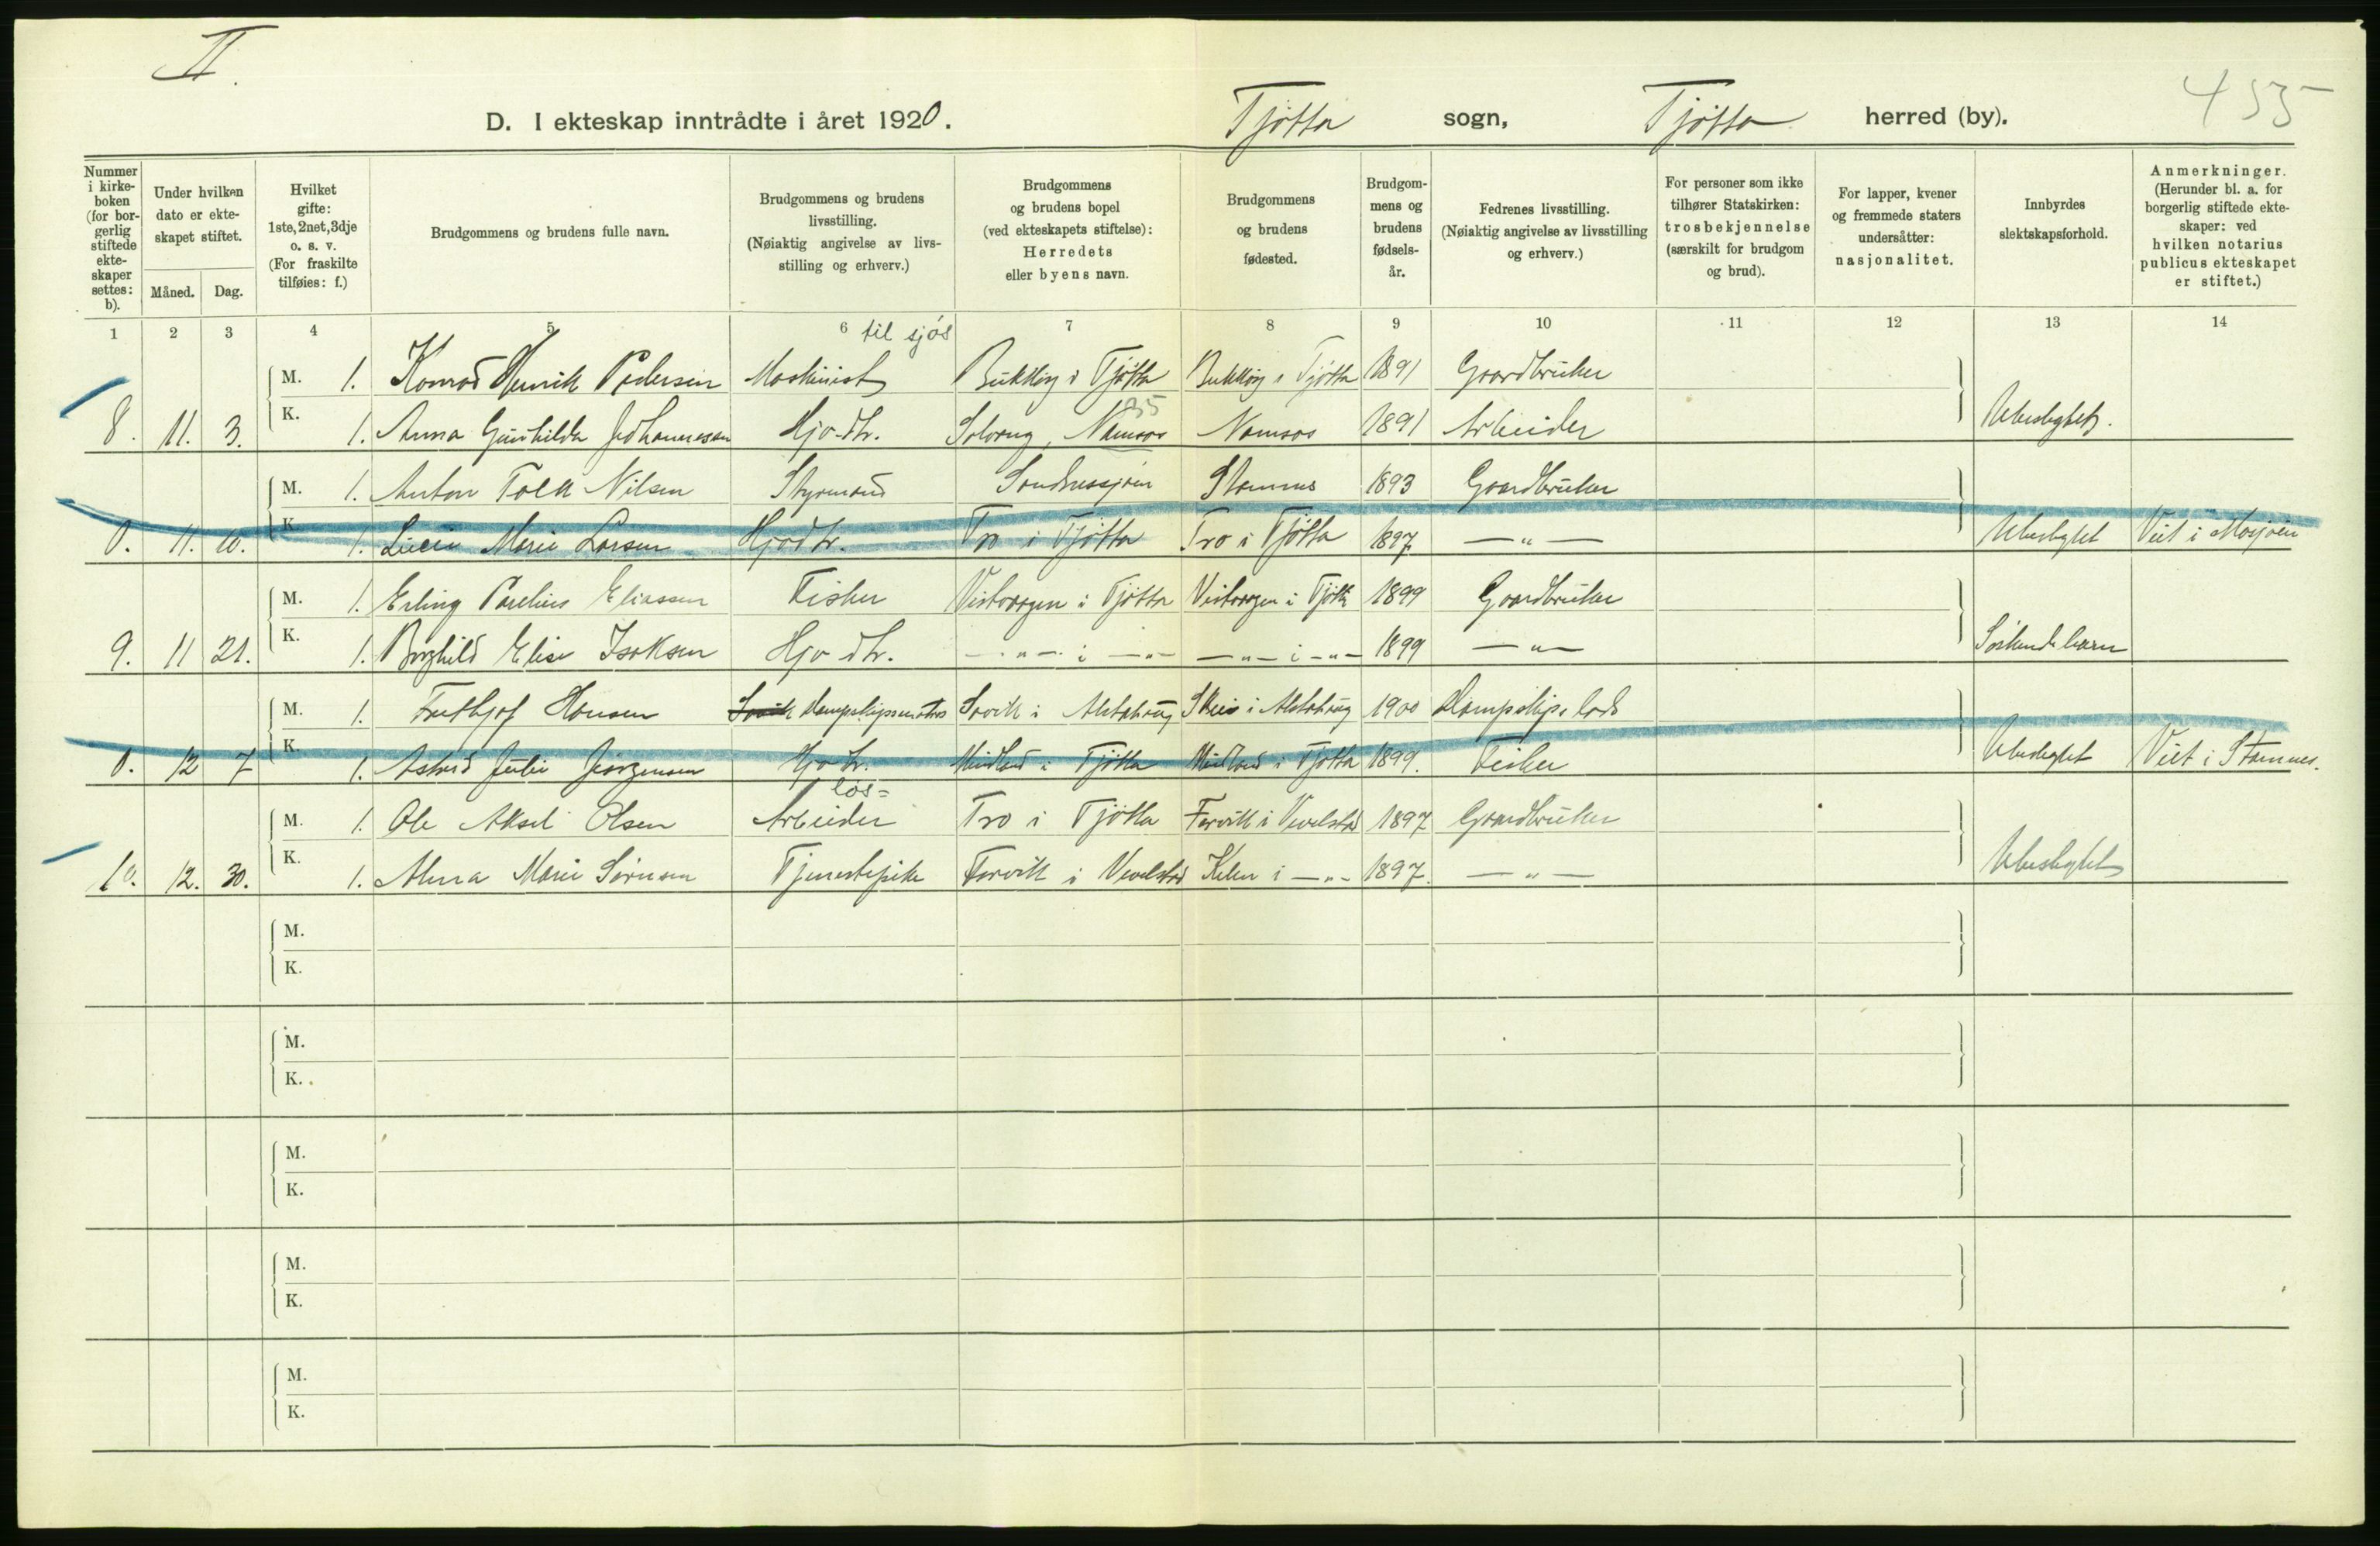 II.
455
D. I ekteskap inntrådte i året 1920. Tjøtta sogn, Tjøtta herred (by).
Nummer i kirke-boken (for bor-gerlig stiftede ekte-skaper settes: b).
Under hvilken dato er ekte-skapet stiftet.
Måned. Dag.
Hvilket gifte: 1ste, 2net, 3dje o. s. v. (For fraskilte tilføies: f.)
Brudgommens og brudens fulle navn.
Brudgommens og brudens livsstilling. (Nøiaktig angivelse av livs-stilling og erhverv.)
Brudgommens og brudens bopel (ved ekteskapets stiftelse): Herredets eller byens navn.
Brudgommens og brudens fødested.
Brudgom-mens og brudens fødsels-år.
Fedrenes livsstilling. (Nøiaktig angivelse av livsstilling og erhverv.)
For personer som ikke tilhører Statskirken: trosbekjennelse (særskilt for brudgom og brud).
For lapper, kvener og fremmede staters undersåtter: nasjonalitet.
Innbyrdes slektskapsforhold.
Anmerkninger. (Herunder bl. a. for borgerlig stiftede ekte-skaper: ved hvilken notarius publicus ekteskapet er stiftet.)
1 2 3 4 5 6 7 8 9 10 11 12 13 14
til sjøs
M. 1. Konrad Henrik Pedersen Maskinist i Tjøtta i Tjøtta 1891 Gaardbruker
35
8. 11. 3. K. 1. Anna Gunhilda Johannessen Hjo. dtr. Namsos Namsos 1891 Arbeider Ubeslegtet.
M. 1. Anton Falk Nilsen Styrmand Sandnessjøen Stamnes 1893 Gaardbruker
0. 11. 10. K. 1. Marie Larsen Hjo dtr. Tro i Tjøtta Tro i Tjøtta 1897 —"— Ubeslegtet Viet i Mosjøen
M. 1. Erling Parelius Eliassen Fisker Vistvaagen i Tjøtta Vistvaagen i Tjøtta 1899 Gaardbruker
9. 11 21. K. 1. Borghild Elise Isaksen Hjo dtr. —"— i —"— —"— i —"— 1899 —"— Søskendebarn
M. 1. Frithjof Hansen Søvik Dampskipsmatros Søvik i Alstahaug i Alstahaug 1900 Dampskips lods
0. 12 7 K. 1. Astrid Julie Jørgensen Hjo dtr. Mindland i Tjøtta Mindland i Tjøtta 1899. Fisker Ubeslegtet Viet i Stamnes.
løs=
M. 1. Ole Aksel Olsen Arbeider Tro i Tjøtta Forvik i Vevelstad 1897 Gaardbruker
10. 12. 30. K. 1. Alma Marie Sørensen Tjenestepike Forvik i Vevelstad i —"— 1897. —"— Ubeslegtet
M.
K.
M.
K.
M.
K.
M.
K.
M.
K.